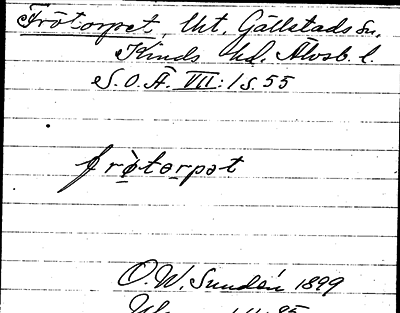 Frötorpet, lht, Gällstads sn,
Kinds hd, Älvsb. l.
S.O.Ä. VII:1 s. 55
frö̀torpət
O.W. Sundén 1899